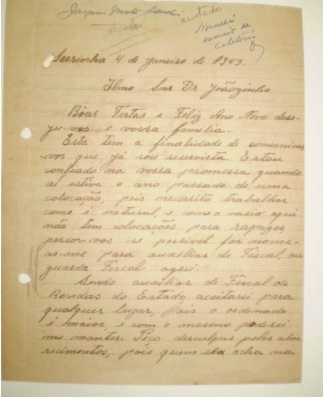 Serrinha 4 de janeiro de 1943.
Ilmo Snr Dr Joãozinho
Bôas Festas e Feliz Ano Novo dese-
jo-vos e vossa familia.
Esta tem a finalidade de comunicar
vos que já sou reservista. Estou
confiado na vossa promessa quando
ai estive o ano passado de uma
colocação, pois necessito trabalhar
como é natural, e como o meio aqui
não tem colocações para rapazes
peço-vos se possivel for nome-
ar-me para auxiliar de Fiscal, ou
guarda Fiscal aqui.
Sendo auxiliar de Fiscal de
Rendas do Estado aceitarei para
qualquer lugar, pois o ordenado
é maior, e com o mesmo poderei
me manter. Peço desculpas pelos abor
recimentos, pois quem se acha na